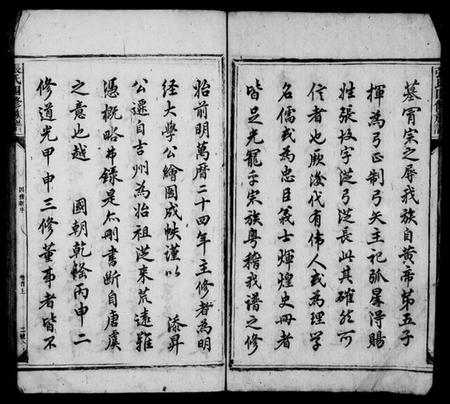 墓冒宗之辱我族自黄帝第五子
揮為弓正制弓矢主祀弧星得賜
姓張故字從弓從長此其確然可
信者也厥後代有偉人或為理学
名儒或為忠臣義士輝煌史冊者
皆足光寵乎宗族粤稽我譜之修
始前明萬曆二十四年主修者為明
经大學公繪圖成帙謹以 添昇
公遷自吉州為始祖從来荒遠難
憑概略弗録是亦刪書断自唐虞
之意也越 國朝乾隆丙申二
修道光甲申三修董事者皆不
張氏四修族譜
四修新序
卷首上